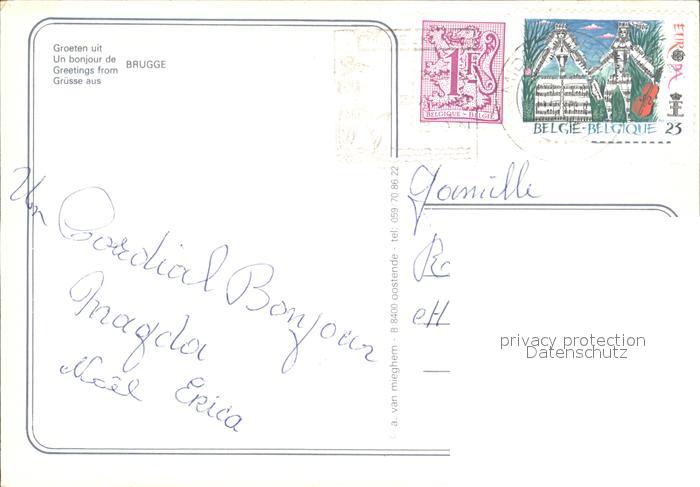 Groeten uit
Un bonjour de
Greetings from
Grüsse aus
BRUGGE
1F
BELGIQUE - BELGIË
EUROPA
BELGIË-BELGIQUE 23
Un Cordial Bonjour
Magda
Noël Erica
a. van mieghem - B 8400 oostende - tel: 059 70 86 22
Famille
privacy protection
Datenschutz